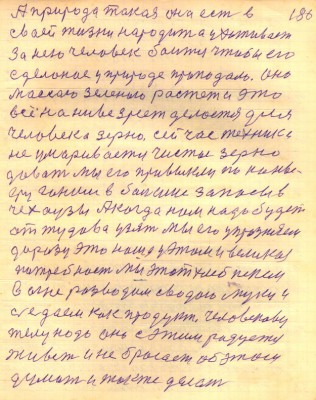 А природа такая она ест в 186
своей жизни народит а ухаживает
За нею человек боится чтобы его
сделоное у природе пропадало. Оно
маскаю зеленою растет и это
всё на ниве зреет делается для
человека зерно, сейчас техника
не умаривается чистое зерно
довать мы его привыкли по конве-
еру гоним в большие запасы в
А когда нам надо будет
от тудова узят мы его
дорогу это наша у этом и великая
потребност мы этот хлеб пекем
В огне розводим сводою муки и
следаем как продукт человекову
телу надо оно с этим радуется
живет и не бросает об этом
думат и также делат